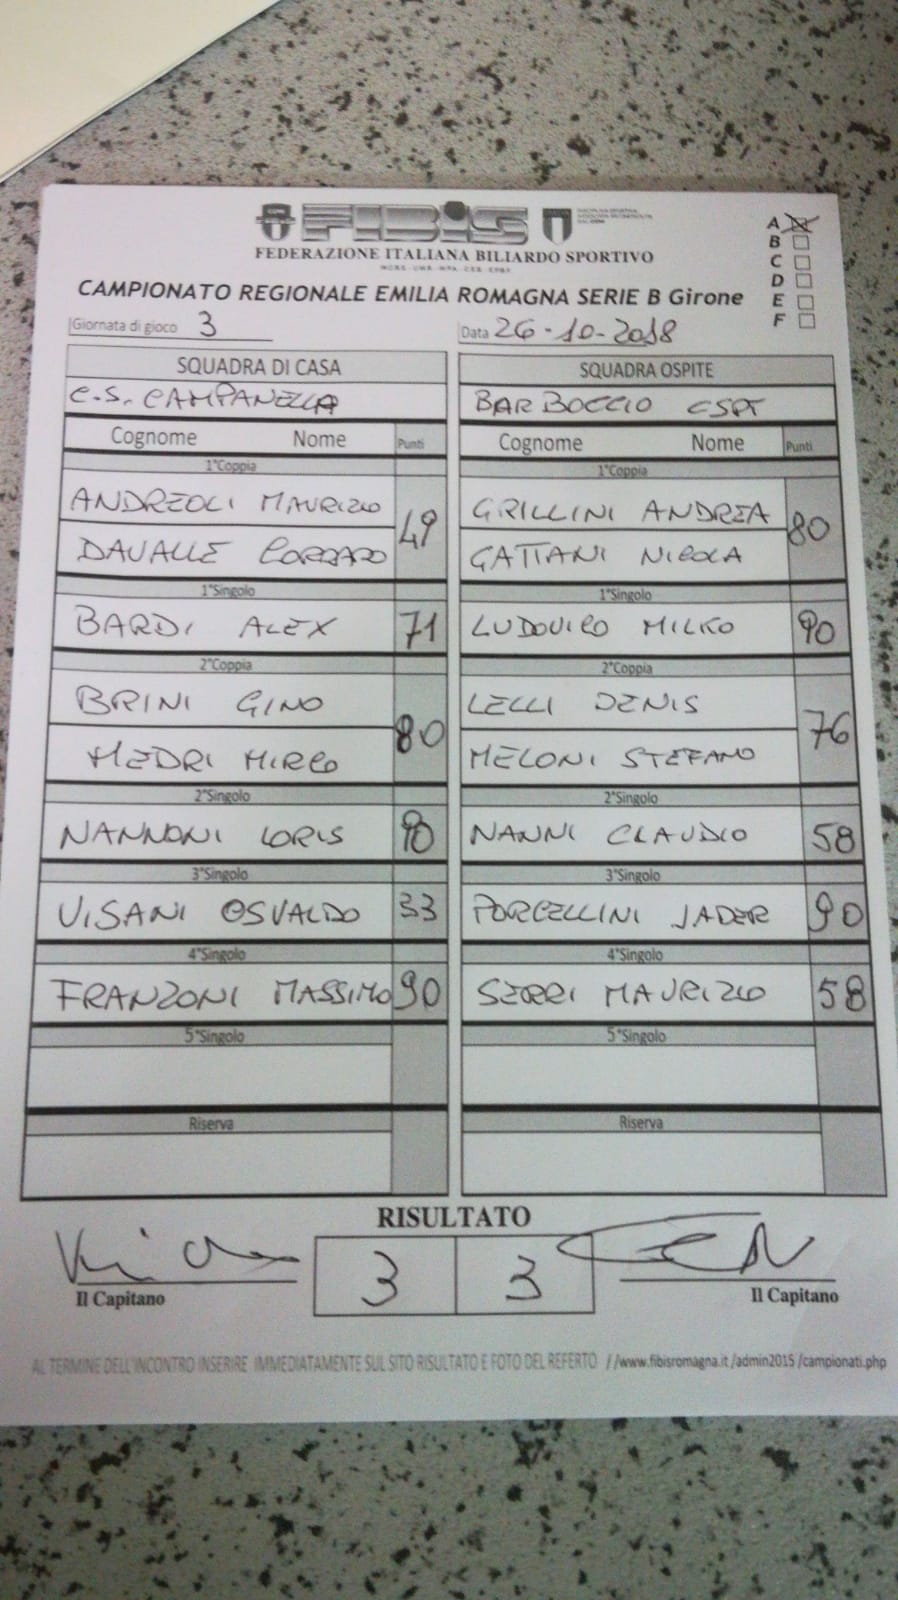 FIBIS
FEDERAZIONE ITALIANA BILIARDO SPORTIVO
CAMPIONATO REGIONALE EMILIA ROMAGNA SERIE B Girone
A
B
C
D
E
F
Giornata di gioco 3
Data 26-10-2018
SQUADRA DI CASA
C.S. CAMPANELLA
Cognome Nome Punti
1°Coppia
ANDREOLI MAURIZIO
49
DAVALLE CORRADO
1°Singolo
BARDI ALEX 71
2°Coppia
BRINI GINO
80
MEDRI MIRCO
2°Singolo
NANNONI LORIS 90
3°Singolo
VISANI OSVALDO 33
4°Singolo
FRANZONI MASSIMO 90
5°Singolo
Riserva
SQUADRA OSPITE
BAR BOCCIO CSPT
Cognome Nome Punti
1°Coppia
GRILLINI ANDREA
80
GATTANI NICOLA
1°Singolo
LUDOVICO MILKO 90
2°Coppia
LELLI DENIS
76
MELONI STEFANO
2°Singolo
NANNI CLAUDIO 58
3°Singolo
PORCELLINI JADER 90
4°Singolo
SERRI MAURIZIO 58
5°Singolo
Riserva
RISULTATO
3 3
Il Capitano
Il Capitano
AL TERMINE DELL'INCONTRO INSERIRE IMMEDIATAMENTE SUL SITO RISULTATO E FOTO DEL REFERTO //www.fibisromagna.it/admin2015/campionati.php